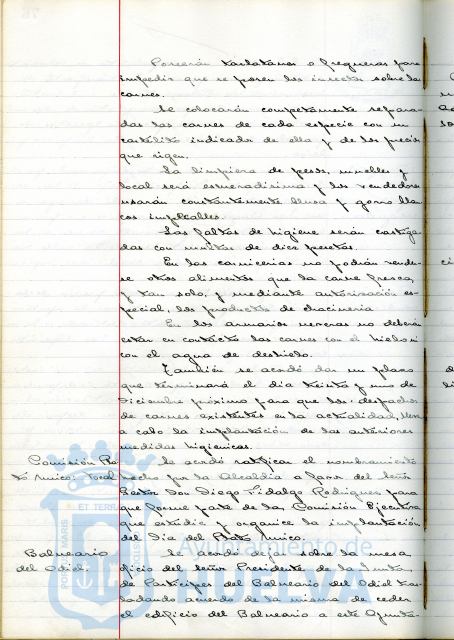 Poseerán tarlatanas o fresqueras para
impedir que se posen los insectos sobre la
carnes.
Se colocarán completamente separa-
das las carnes de cada especie con un
cartelito indicador de ella y de los precios
que rigen.
La limpieza de pesos, muebles y
local será esmeradísima y los vendedores
usarán constantemente blusa y gorro blan
cos impecables.
Las faltas de higiene serán castiga-
das con multas de diez pesetas.
En las carnicerías no podrán vender-
se otros alimentos que la carne fresca,
y tan solo, y mediante autorización es-
pecial, los productos de chacinería
En los armarios neveras no deberán
estar en contacto las carnes con el hielo ni
con el agua de deshielo.
También se acordó dar un plazo
que terminará el día treinta y uno de
Diciembre próximo para que los despachos
de carnes existentes en la actualidad, lleven
a cabo la implantación de las anteriores
medidas higiénicas.
Comisión Pla
to único: Vocal
Se acordó ratificar el nombramiento
hecho por la Alcaldía a favor del Señor
Gestor Don Diego Fidalgo Rodríguez para
que forme parte de la Comisión Ejecutiva
que estudie y organice la implantación
del Día del Plato Único.
Balneario
del Odiel:
Se acordó dejar sobre la mesa
oficio del Señor Presidente de la Junta
de Partícipes del Balneario del Odiel tras-
ladando acuerdo de la misma de ceder
el edificio del Balneario a este Ayunta-
Ayuntamiento de
HUELVA
ET TERRAE